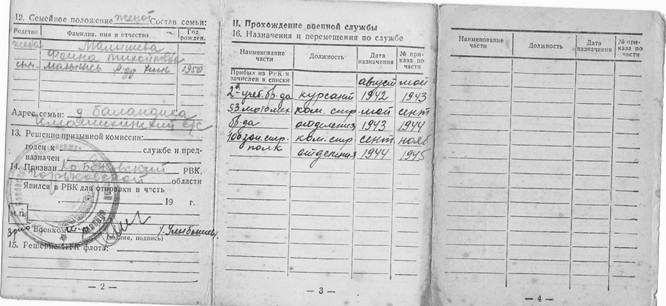 12. Семейное положение женат Состав семьи:
Родство
Фамилия, имя и отчество
Год рожден.
жена Малышева
сын 1950
Адрес семьи: д Баландиха
с/с
13. Решение призывной комиссии:
годен к службе и пред-
назначен
14. Призван РВК,
Горьковской области
Явился в РВК для отправки в часть
19 г.
М.П.
Военком
(звание, подпись)
15. Решение РВК флота:
— 2 —
II. Прохождение военной службы
16. Назначения и перемещения по службе
Наименование части
Должность
Дата назначения
№ приказа по части
Прибыл из РВК и зачислен в списки
август май
2я учеб. бр-да курсант 1942 1943
53 мотомех ком. стр. май сент
бр-да отделения 1943 1944
стр. ком. стр сент. нояб
полк отделения 1944 1945
— 3 —
Наименование части
Должность
Дата назначения
№ приказа по части
— 4 —